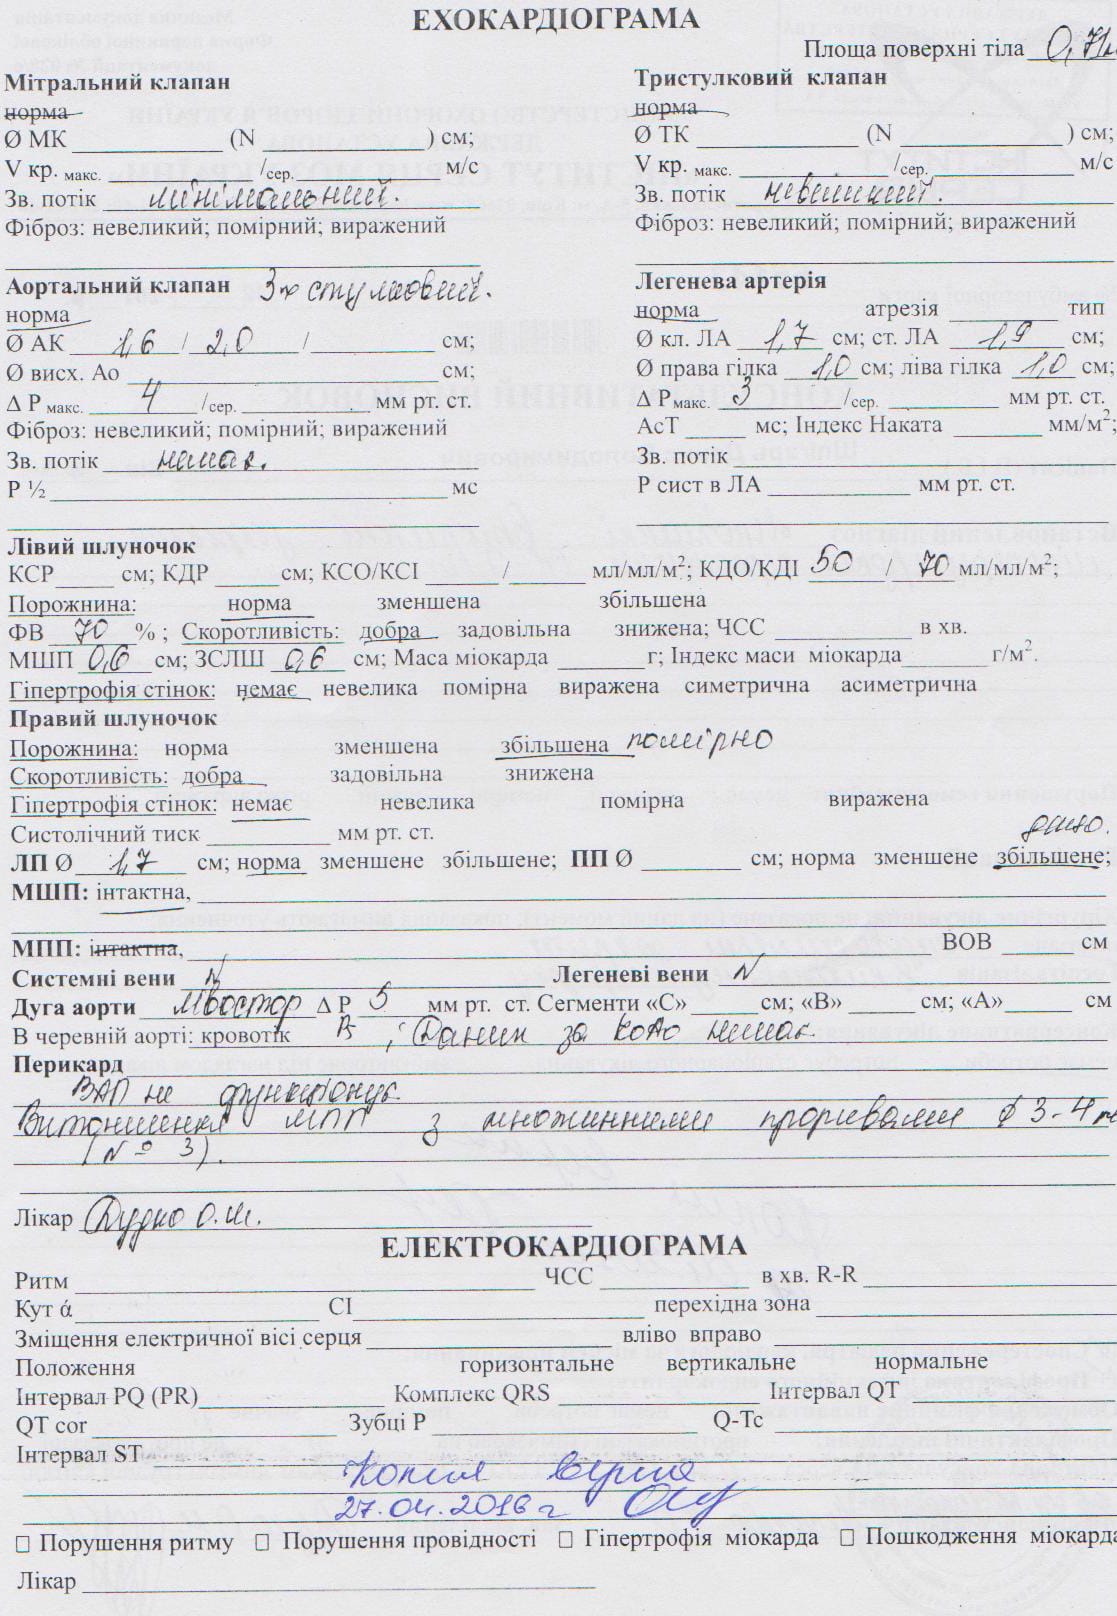 ЕХОКАРДІОГРАМА
Площа поверхні тіла 0,71
Мітральний клапан
норма
Ø МК ____ (N ____ ) см;
V кр. макс. ____ /сер. ____ м/с
Зв. потік мінімальний.
Фіброз: невеликий; помірний; виражений
Тристулковий клапан
норма
Ø ТК ____ (N ____ ) см;
V кр. макс. ____ /сер. ____ м/с
Зв. потік невеликий.
Фіброз: невеликий; помірний; виражений
Аортальний клапан 3х стулковий.
норма
Ø АК 1,6 / 2,0 / ____ см;
Ø висх. Ао ____ см;
Δ Р макс. 4 /сер. ____ мм рт. ст.
Фіброз: невеликий; помірний; виражений
Зв. потік немає.
Р ½ ____ мс
Легенева артерія
норма атрезія ____ тип
Ø кл. ЛА 1,7 см; ст. ЛА 1,9 см;
Ø права гілка 1,0 см; ліва гілка 1,0 см;
Δ Рмакс. 3 /сер. ____ мм рт. ст.
АсТ ____ мс; Індекс Наката ____ мм/м²;
Зв. потік ____
Р сист в ЛА ____ мм рт. ст.
Лівий шлуночок
КСР ____ см; КДР ____ см; КСО/КСІ ____ / ____ мл/мл/м²; КДО/КДІ 50 / 70 мл/мл/м²;
Порожнина: норма зменшена збільшена
ФВ 70 % ; Скоротливість: добра задовільна знижена; ЧСС ____ в хв.
МШП 0,6 см; ЗСЛШ 0,6 см; Маса міокарда ____ г; Індекс маси міокарда ____ г/м².
Гіпертрофія стінок: немає невелика помірна виражена симетрична асиметрична
Правий шлуночок
Порожнина: норма зменшена збільшена помірно
Скоротливість: добра задовільна знижена
Гіпертрофія стінок: немає невелика помірна виражена
Систолічний тиск ____ мм рт. ст.
дещо.
ЛП Ø 1,7 см; норма зменшене збільшене; ПП Ø ____ см; норма зменшене збільшене;
МШП: інтактна, ____
МПП: інтактна, ____ ВОВ ____ см
Системні вени N Легеневі вени N
Дуга аорти л/востор Δ Р 5 мм рт. ст. Сегменти «С» ____ см; «В» ____ см; «А» ____ см
В черевній аорті: кровотік ; Даних за КоАо немає.
Перикард
ВАП не функціонує.
Витоншення МПП з множинними проривами Ø 3-4
(N = 3).
Лікар Дудко О.М.
ЕЛЕКТРОКАРДІОГРАМА
Ритм ____ ЧСС ____ в хв. R-R ____
Кут ά ____ СІ ____ перехідна зона ____
Зміщення електричної вісі серця ____ вліво вправо ____
Положення горизонтальне вертикальне нормальне
Інтервал PQ (PR) ____ Комплекс QRS ____ Інтервал QT ____
QT cor ____ Зубці Р ____ Q-Tc ____
Інтервал ST ____
Копия верна
27.04.2016 г
□ Порушення ритму □ Порушення провідності □ Гіпертрофія міокарда □ Пошкодження міокарда
Лікар ____